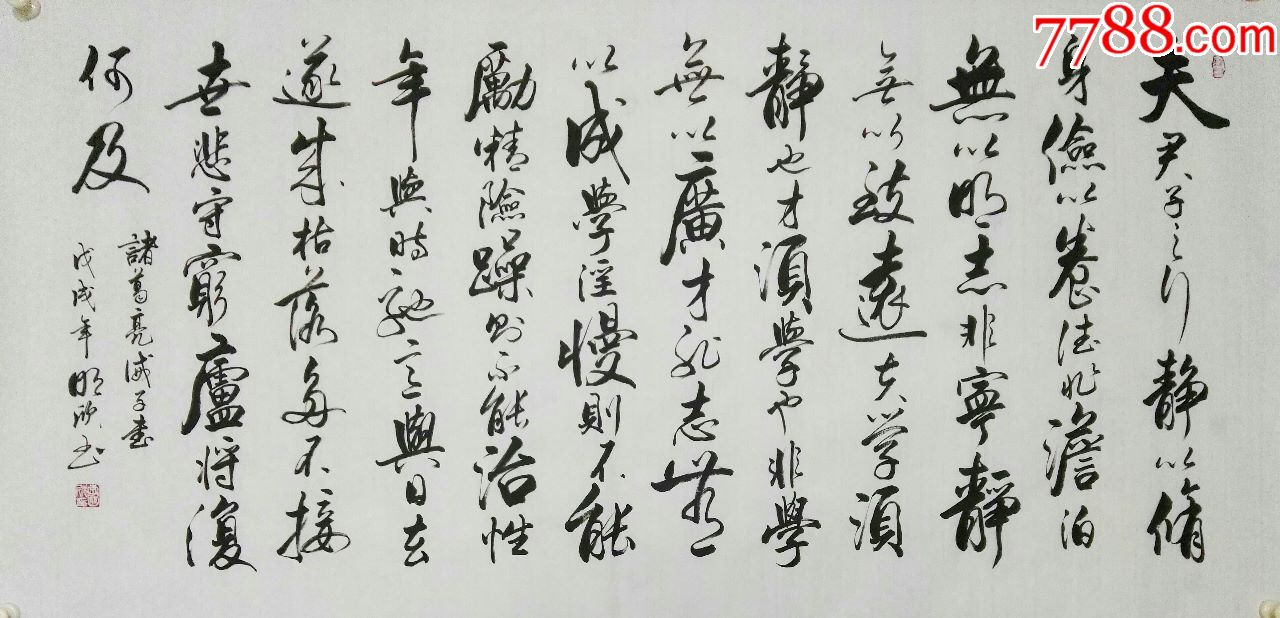 7788.com
夫君子之行靜以脩
身儉以養德非澹泊
無以明志非寧靜
無以致遠夫学須
靜也才須學也非學
無以廣才非志無
以成學淫慢則不能
勵精險躁則不能治性
年與時馳意與日去
遂成枯落多不接
世悲守窮廬將復
何及
諸葛亮誡子書
戊戌年明欣书